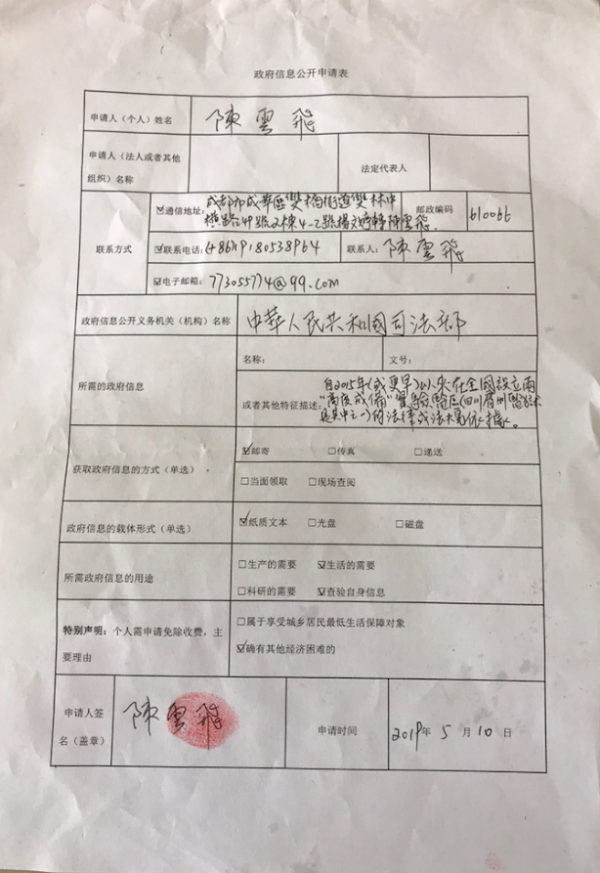 政府信息公开申请表
申请人（个人）姓名 陳雲飛
申请人（法人或者其他组织）名称 法定代表人
联系方式
☑通信地址: 成都市成華區雙橋街道雙林中
橫路49號2棟4-2號楊文婷轉陳雲飛
邮政编码 610066
☑联系电话: (+86)19180538964 联系人: 陳雲飛
☑电子邮箱: 773055774@qq.com
政府信息公开义务机关（机构）名称 中華人民共和國司法部
所需的政府信息
名称: 文号:
或者其他特征描述:
自2015年(或更早)以來在全國設立兩
的法律或法
获取政府信息的方式（单选）
☑邮寄 □传真 □递送
□当面领取 □现场查阅
政府信息的载体形式（单选） ☑纸质文本 □光盘 □磁盘
所需政府信息的用途
□生产的需要 ☑生活的需要
□科研的需要 ☑查验自身信息
特别声明: 个人需申请免除收费，主
要理由
□属于享受城乡居民最低生活保障对象
☑确有其他经济困难的
申请人签
名（盖章）
陳雲飛
申请时间 2019年 5 月 10 日